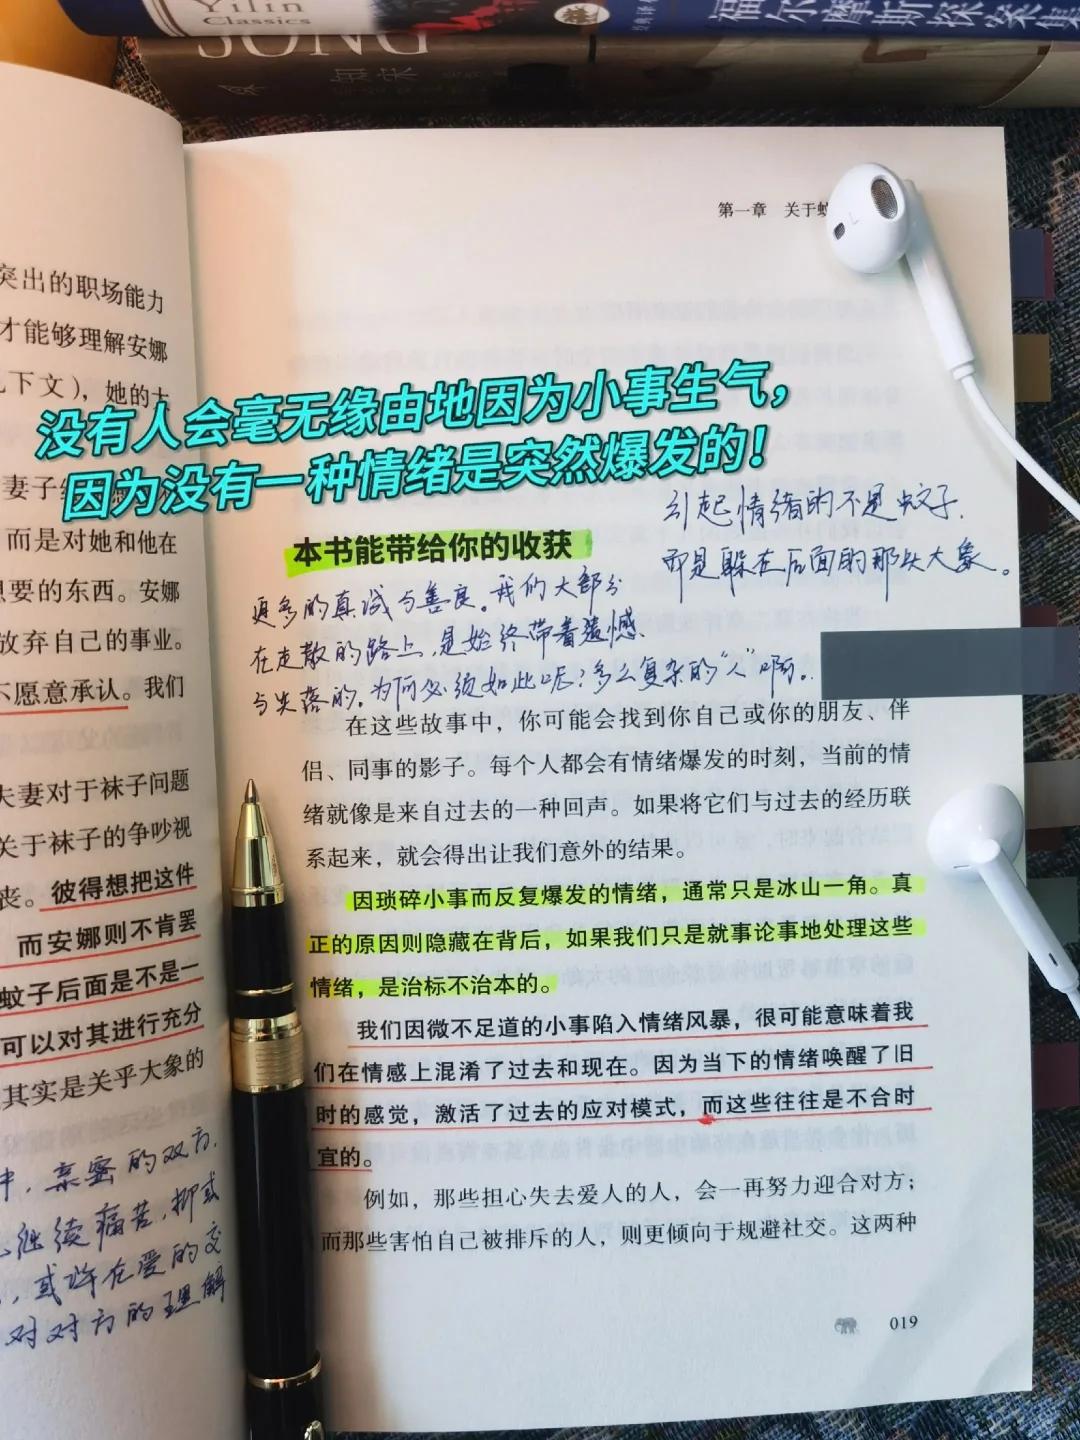 Yilin
Classics
福尔摩斯探案集
SONG
知宋
突出的职场能力
才能够理解安娜
下文），她的
妻子
而是对她和他在
想要的东西。安娜
放弃自己的事业。
不愿意承认。我们
夫妻对于袜子问题
关于袜子的争吵视
丧。彼得想把这件
而安娜则不肯罢
蚊子后面是不是一
可以对其进行充分
其实是关乎大象的
中，亲密的双方，
继续痛苦，抑或
，或许在爱的交
对对方的理解
第一章 关于
没有人会毫无缘由地因为小事生气，
因为没有一种情绪是突然爆发的！
引起情绪的不是蚊子，
而是躲在后面的那头大象。
本书能带给你的收获
更多的真诚与善良。我们大部分
在走散的路上，是始终带着遗憾、
与失落的。为何必须如此呢？多么复杂的“人”啊。
在这些故事中，你可能会找到你自己或你的朋友、伴
侣、同事的影子。每个人都会有情绪爆发的时刻，当前的情
绪就像是来自过去的一种回声。如果将它们与过去的经历联
系起来，就会得出让我们意外的结果。
因琐碎小事而反复爆发的情绪，通常只是冰山一角。真
正的原因则隐藏在背后，如果我们只是就事论事地处理这些
情绪，是治标不治本的。
我们因微不足道的小事陷入情绪风暴，很可能意味着我
们在情感上混淆了过去和现在。因为当下的情绪唤醒了旧
时的感觉，激活了过去的应对模式，而这些往往是不合时
宜的。
例如，那些担心失去爱人的人，会一再努力迎合对方；
而那些害怕自己被排斥的人，则更倾向于规避社交。这两种
019